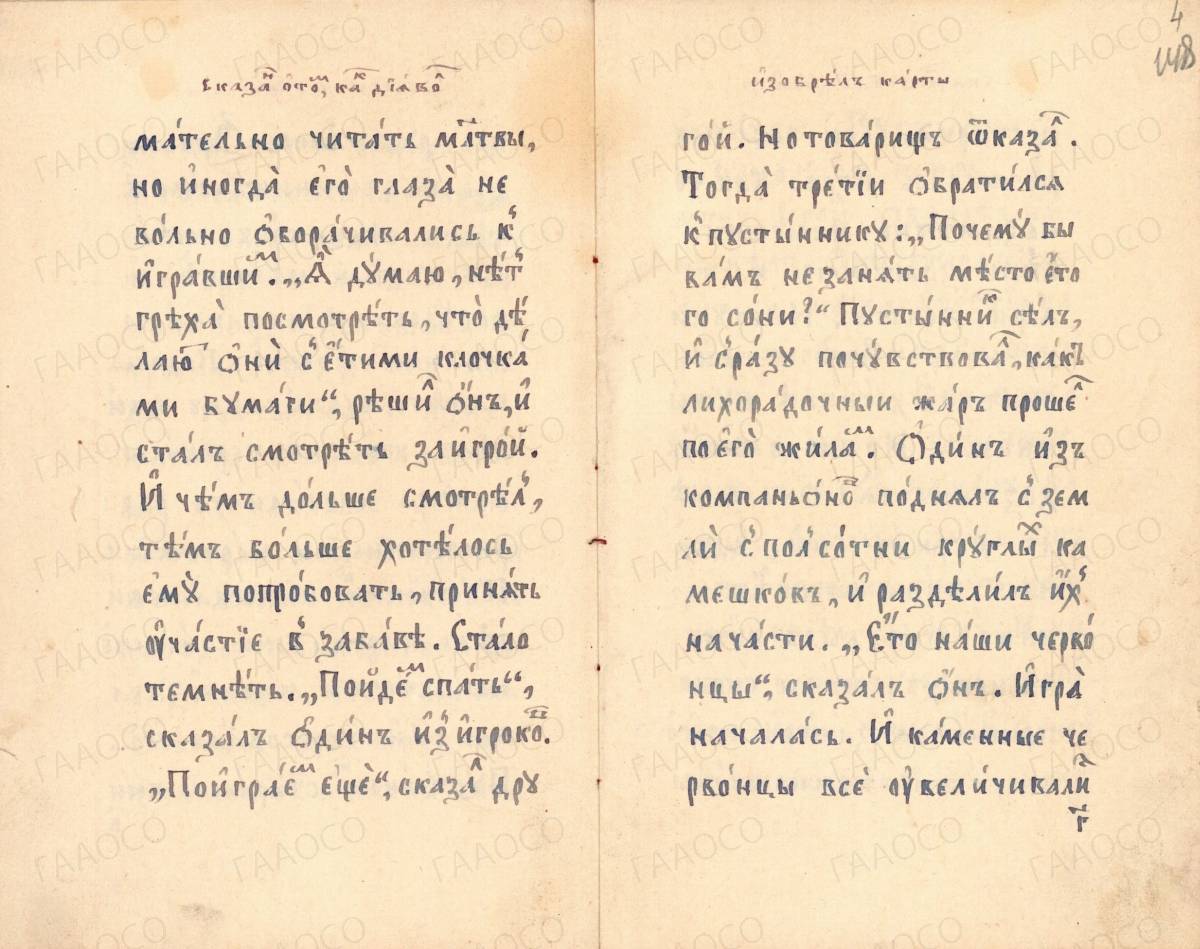 Сказан̾ ѻ҆то̑м, ка̑к дїѧ́во̑л
ма́тельно чита́ть мл҃твы,
но и҆ногда̀ є҆го̀ глаза̀ не
во́льно ѻ҆бора́чивались к̾
и҆гра́вши̑м. „Ѧ҆̀ ду́маю, нѣ́т̾
грѣха̀ посмотрѣ́ть, что̀ дѣ́
лаю̑т ѻ҆нѝ с̾ є҆́тими клочка́
ми бума́ги“, рѣши̑л ѻ҆́нъ, и҆
ста́лъ смотрѣ́ть за и҆гро́й.
И҆ чѣ́мъ до́льше смотрѣ́л̾,
тѣ́мъ бо́льше хотѣ́лось
є҆мꙋ̀ попро́бовать, приня́ть
ᲂу҆ча́стїе в̾ заба́вѣ. Ста́ло
темнѣ́ть. „Пойде́̑м спа́ть“,
сказа́лъ ѻ҆ди́нъ и҆з̾ и҆гроко̑в.
„Пои҆грае́̑м ещѐ“, сказа̑л дрꙋ
4
148
и҆зобрѣ́лъ ка́рты
го́й. Но това́рищъ ѿказа̑л.
Тогда̀ тре́тїи ѻ҆брати́лсѧ
к̾ пусты́ннику: „Почемꙋ́ бы
ва́мъ не заня́ть мѣ́сто є҆́то
го со́ни?“ Пусты́нни̑к сѣ́лъ,
и҆ с̾ра́зу почꙋ́вствова̑л, ка́къ
лихора́дочныи жа́ръ проше̑л
по є҆го̀ жи́ла̑м. Ѻ҆ди́нъ и҆зъ
компаньѻ́но̑в по́днялъ с̾ зем
лѝ с̾ пол̾со́тни крꙋ́глы̑х ка
мешко́въ, и҆ раздѣли́лъ и҆́х̾
на ча́сти. „Є҆́то на́ши черво́
нцы“, сказа́лъ ѻ҆́нъ. И҆гра̀
начала́сь. И҆ ка́менные че
рво́нцы всѐ ᲂу҆вели́чивали̑с
г҃